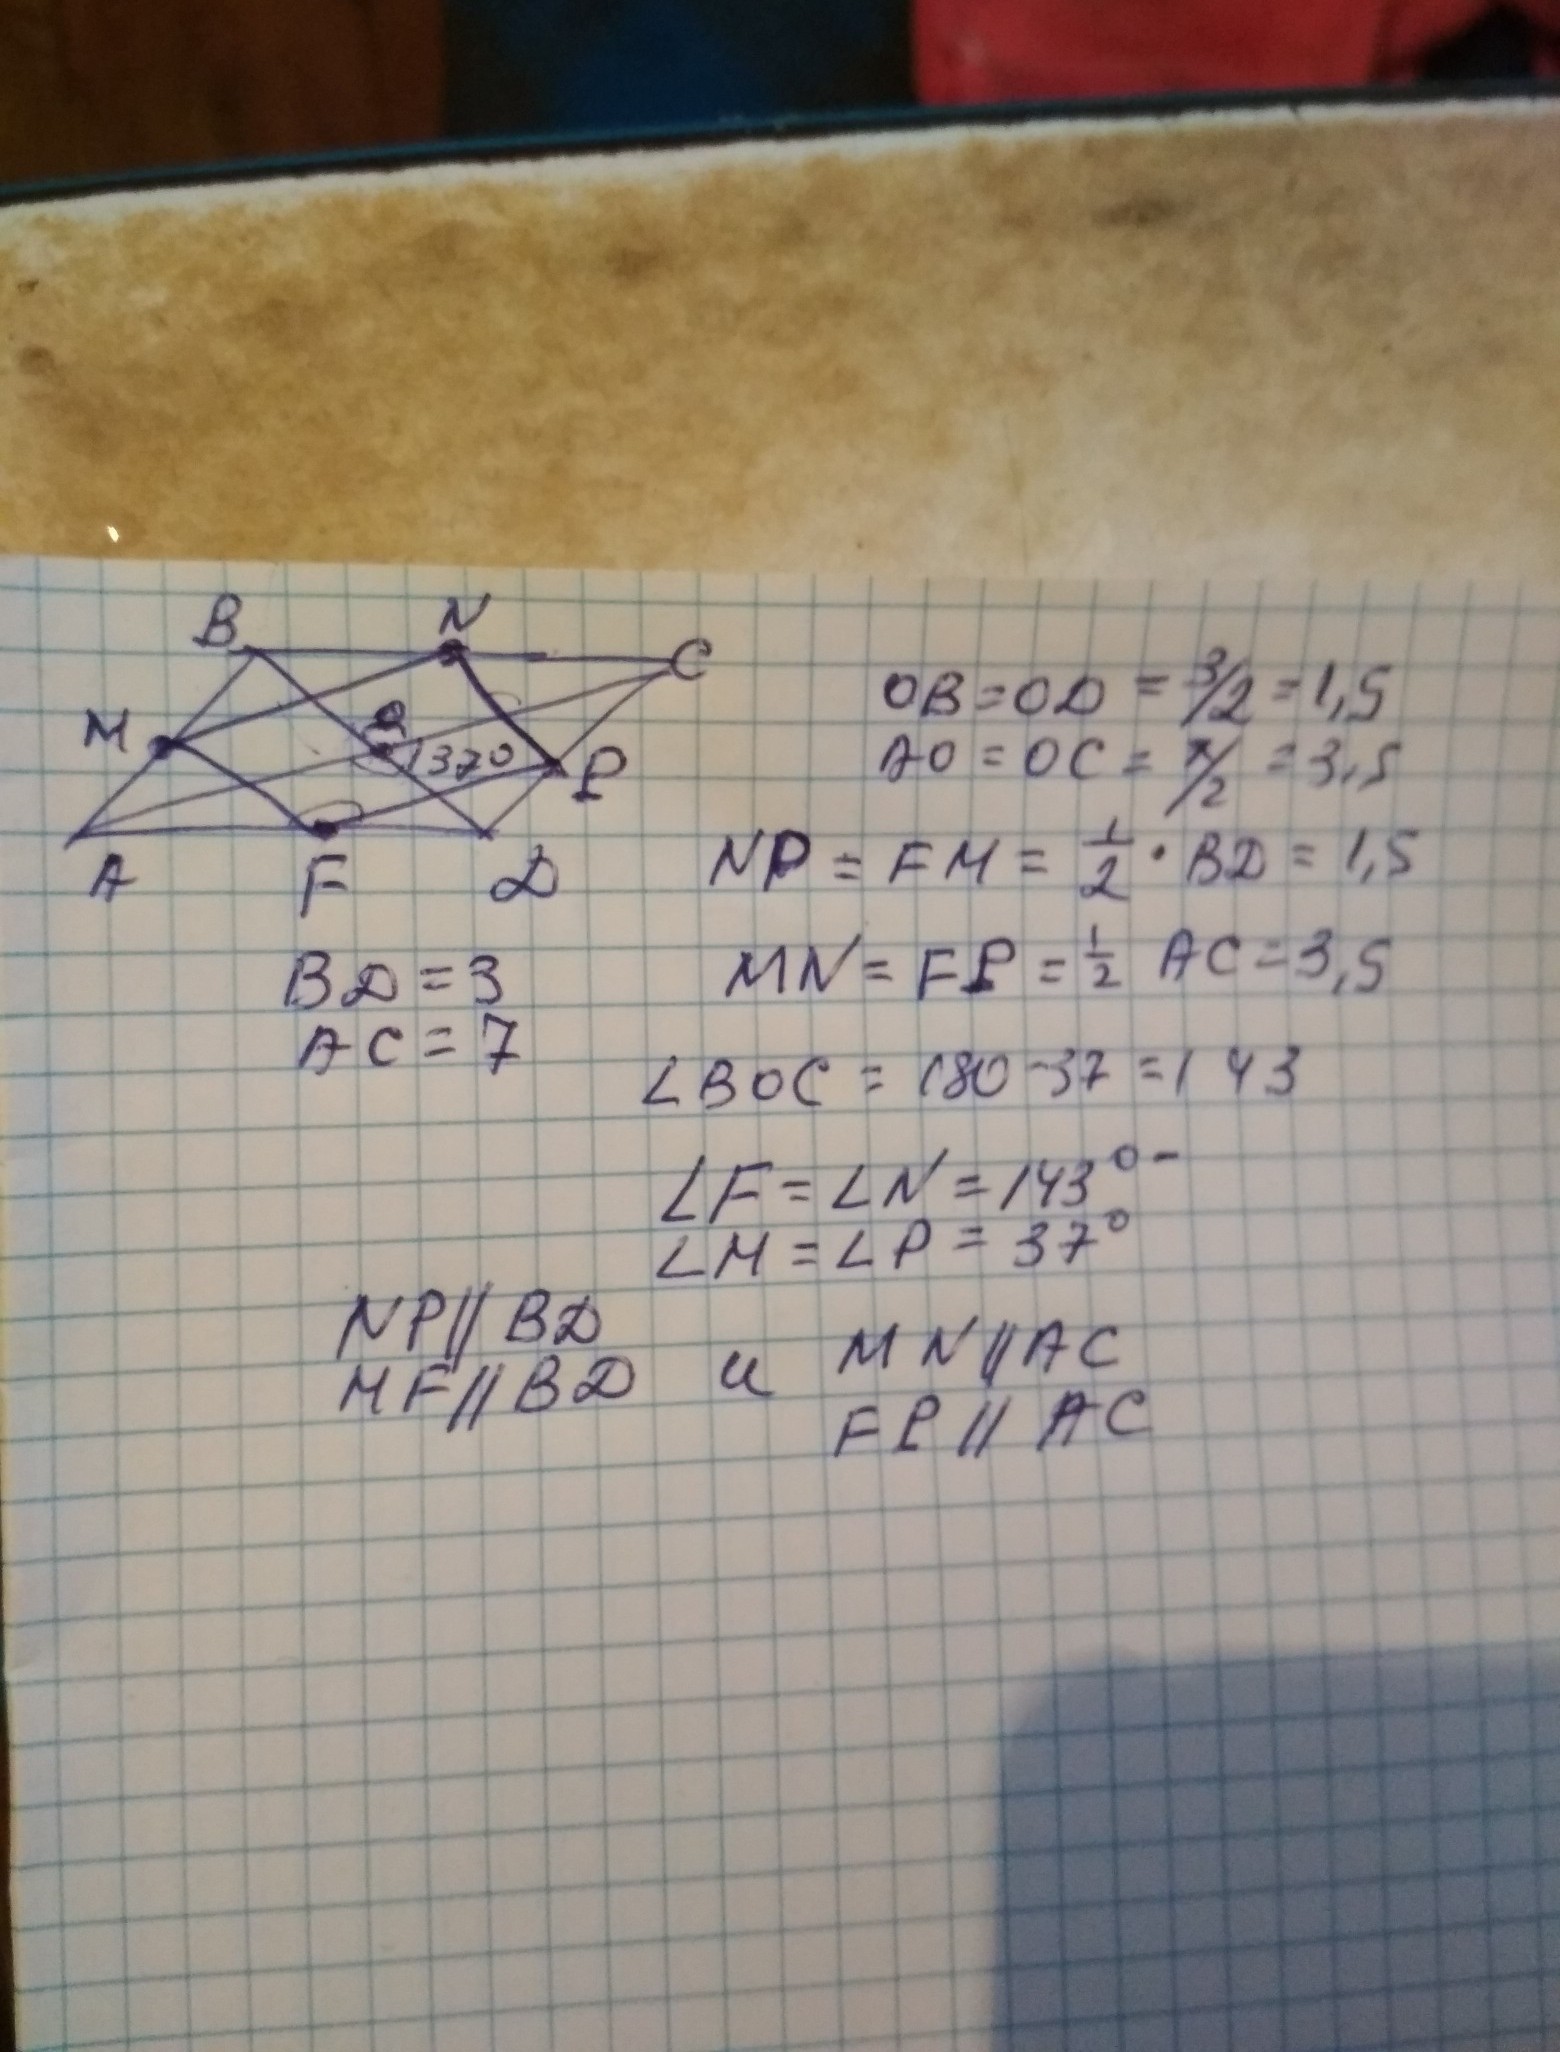 B N C
M O 37° P
A F D
BD = 3
AC = 7
OB = OD = 3/2 = 1,5
AO = OC = 7/2 = 3,5
NP = FM = 1/2 · BD = 1,5
MN = FP = 1/2 AC = 3,5
∠BOC = 180 - 37 = 143
∠F = ∠N = 143° -
∠M = ∠P = 37°
NP // BD
MF // BD и MN // AC
FP // AC